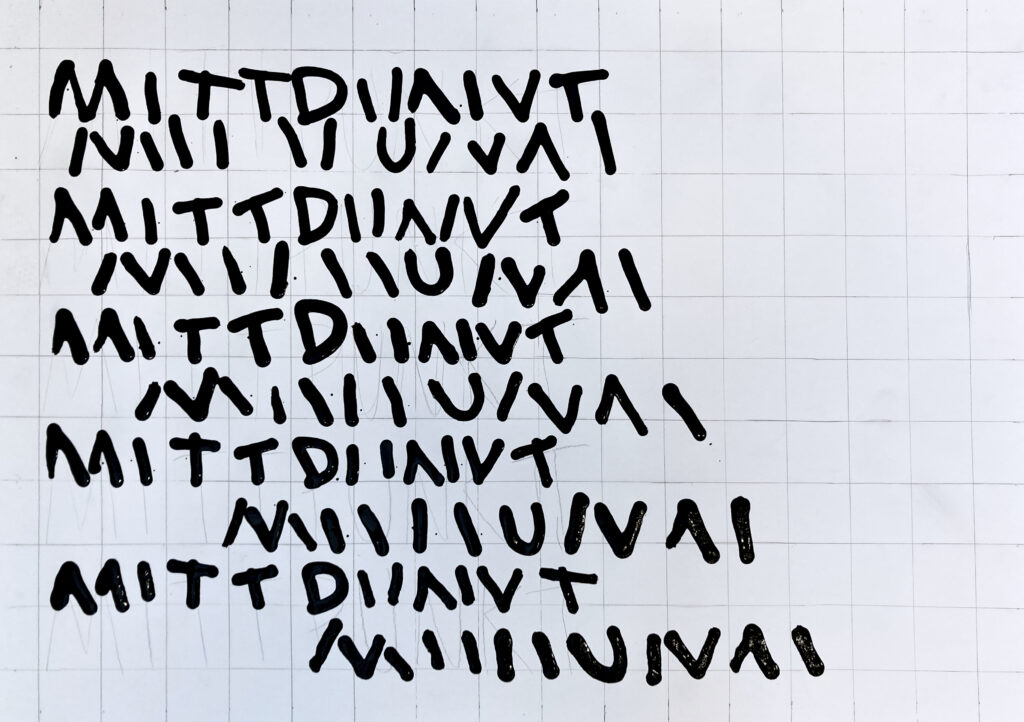 MITTDIIΛIVT
NIIIIIUIVΛI
MITTDIIΛIVT
NIIIIIUIVΛI
MITTDIIΛIVT
NIIIIIUIVΛI
MITTDIIΛIVT
NIIIIIUIVΛI
MITTDIIΛIVT
NIIIIIUIVΛI